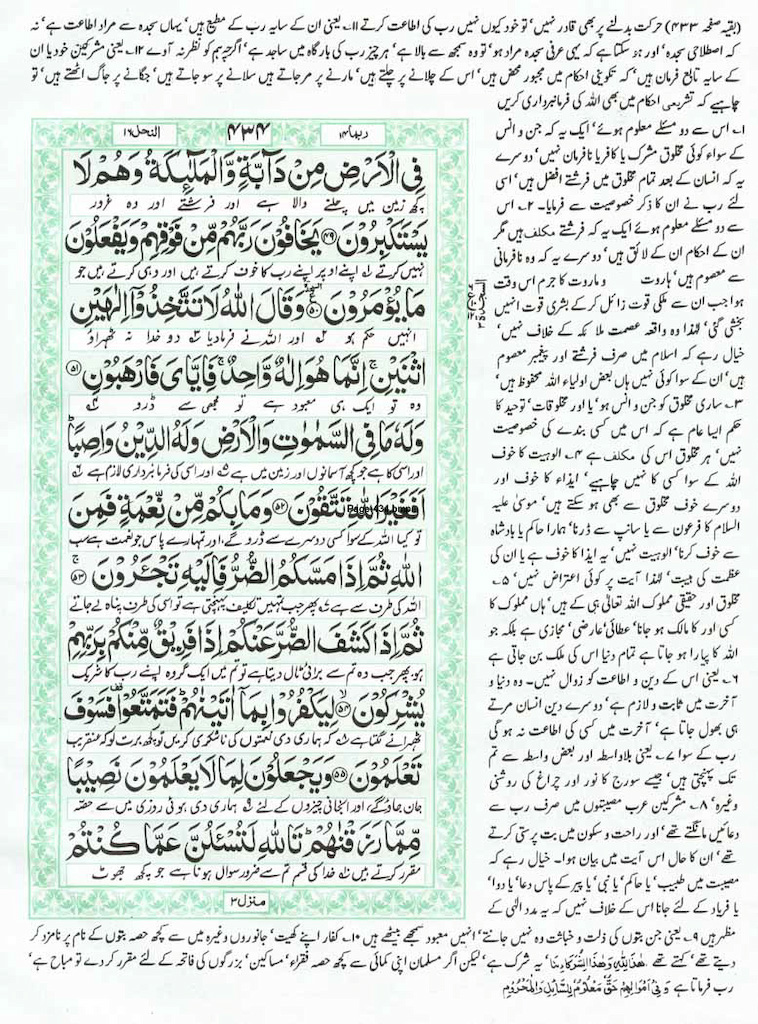 (بقیہ صفحہ ۴۳۳) حرکت بدلنے پر بھی قادر نہیں' تو خود کیوں نہیں رب کی اطاعت کرتے ۱۱۔ یعنی ان کے سایہ رب کے مطیع ہیں' یہاں سجدہ سے مراد اطاعت ہے' نہ
کہ اصطلاحی سجدہ' اور ہو سکتا ہے کہ یہی عرفی سجدہ مراد ہو' تو وہ سمجھ سے بالا ہے' ہر چیز رب کی بارگاہ میں ساجد ہے' اگرچہ ہم کو نظر نہ آوے ۱۲۔ یعنی مشرکین خود یا ان
کے سایہ تابع فرمان ہیں' کہ تکوینی احکام میں مجبور محض ہیں' اس کے چلانے پر چلتے ہیں' مارنے پر مر جاتے ہیں سلانے پر سو جاتے ہیں' جگانے پر جاگ اٹھتے ہیں' تو
چاہیے کہ تشریعی احکام میں بھی اللہ کی فرمانبرداری کریں
ربما ۱۴ ۴۳۴ النحل ۱۶
فِي الْاَرْضِ مِنْ دَآبَّةٍ وَّالْمَلٰٓئِكَةُ وَهُمْ لَا
کچھ زمین میں چلنے والا ہے اور فرشتے اور وہ غرور
يَسْتَكْبِرُوْنَ ۴۹ يَخَافُوْنَ رَبَّهُمْ مِّنْ فَوْقِهِمْ وَيَفْعَلُوْنَ
نہیں کرتے اپنے اوپر اپنے رب کا خوف کرتے ہیں اور وہی کرتے ہیں جو
مَا يُؤْمَرُوْنَ ۵۰ وَقَالَ اللهُ لَا تَتَّخِذُوْٓا اِلٰهَيْنِ
انہیں حکم ہو اور اللہ نے فرما دیا دو خدا نہ ٹھہراؤ
اثْنَيْنِ اِنَّمَا هُوَ اِلٰهٌ وَّاحِدٌ فَاِيَّايَ فَارْهَبُوْنِ ۵۱
وہ تو ایک ہی معبود ہے تو مجھی سے ڈرو
وَلَهٗ مَا فِي السَّمٰوٰتِ وَالْاَرْضِ وَلَهُ الدِّيْنُ وَاصِبًا
اور اسی کا ہے جو کچھ آسمانوں اور زمین میں ہے اور اسی کی فرمانبرداری لازم ہے
اَفَغَيْرَ اللهِ تَتَّقُوْنَ ۵۲ وَمَا بِكُمْ مِّنْ نِّعْمَةٍ فَمِنَ
Page434.bmp
تو کیا اللہ کے سوا کسی دوسرے سے ڈرو گے، اور تمہارے پاس جو نعمت ہے سب
اللهِ ثُمَّ اِذَا مَسَّكُمُ الضُّرُّ فَاِلَيْهِ تَجْـَٔرُوْنَ ۵۳
اللہ کی طرف سے ہے پھر جب تمہیں تکلیف پہنچتی ہے تو اسی کی طرف پناہ لے جاتے
ثُمَّ اِذَا كَشَفَ الضُّرَّ عَنْكُمْ اِذَا فَرِيْقٌ مِّنْكُمْ بِرَبِّهِمْ
ہو، پھر جب وہ تم سے برائی ٹال دیتا ہے تو تم میں ایک گروہ اپنے رب کا شریک
يُشْرِكُوْنَ ۵۴ لِيَكْفُرُوْا بِمَآ اٰتَيْنٰهُمْ فَتَمَتَّعُوْا فَسَوْفَ
ٹھہرانے لگتا ہے کہ ہماری دی نعمتوں کی ناشکری کریں تو کچھ برت لو کہ عنقریب
تَعْلَمُوْنَ ۵۵ وَيَجْعَلُوْنَ لِمَا لَا يَعْلَمُوْنَ نَصِيْبًا
جان جاؤ گے، اور انجانی چیزوں کے لئے ہماری دی ہوئی روزی میں سے حصہ
مِّمَّا رَزَقْنٰهُمْ تَاللهِ لَتُسْـَٔلُنَّ عَمَّا كُنْتُمْ
مقرر کرتے ہیں خدا کی قسم تم سے ضرور سوال ہونا ہے جو کچھ جھوٹ
منزل ۳
۱۔ اس سے دو مسئلے معلوم ہوئے' ایک یہ کہ جن و انس
کے سواء کوئی مخلوق مشرک یا کافر یا نافرمان نہیں' دوسرے
یہ کہ انسان کے بعد تمام مخلوق میں فرشتے افضل ہیں' اسی
لئے رب نے ان کا ذکر خصوصیت سے فرمایا۔ ۲۔ اس
سے دو مسئلے معلوم ہوئے ایک یہ کہ فرشتے مکلف ہیں مگر
ان کے احکام ان کے لائق ہیں' دوسرے یہ کہ وہ نافرمانی
سے معصوم ہیں' ہاروت و ماروت کا جرم اس وقت
ہوا جب ان سے ملکی قوت زائل کر کے بشری قوت انہیں
بخشی گئی' لہٰذا وہ واقعہ عصمت ملائکہ کے خلاف نہیں'
خیال رہے کہ اسلام میں صرف فرشتے اور پیغمبر معصوم
ہیں' ان کے سوا کوئی نہیں ہاں بعض اولیاء اللہ محفوظ ہیں'
۳۔ ساری مخلوق کو جن و انس ہو' یا اور مخلوقات' توحید کا
حکم ایسا عام ہے کہ اس میں کسی بندے کی خصوصیت
نہیں' ہر مخلوق اس کی مکلف ہے ۴۔ الوہیت کا خوف
اللہ کے سوا کسی کا نہیں چاہیے' ایذاء کا خوف اور
دوسرے خوف مخلوق سے بھی ہو سکتے ہیں' موسیٰ علیہ
السلام کا فرعون سے یا سانپ سے ڈرنا' ہمارا حاکم یا بادشاہ
سے خوف کرنا' الوہیت نہیں' یہ ایذا کا خوف ہے یا ان کی
عظمت کی ہیبت' لہٰذا آیت پر کوئی اعتراض نہیں' ۵۔
مخلوق اور حقیقی مملوک اللہ تعالیٰ ہی کے ہیں' ہاں مملوک کا
کسی اور کا مالک ہو جانا' عطائی' عارضی' مجازی ہے بلکہ جو
اللہ کا پیارا ہو جاتا ہے تمام دنیا اس کی ملک بن جاتی ہے
۶۔ یعنی اس کے دین و اطاعت کو زوال نہیں۔ وہ دنیا و
آخرت میں ثابت و لازم ہے' دوسرے دین انسان مرتے
ہی بھول جاتا ہے' آخرت میں کسی کی اطاعت نہ ہو گی
رب کے سوا ۷۔ یعنی بلاواسطہ اور بعض واسطہ سے تم
تک پہنچتی ہیں' جیسے سورج کا نور اور چراغ کی روشنی
وغیرہ' ۸۔ مشرکین عرب مصیبتوں میں صرف رب سے
دعائیں مانگتے تھے' اور راحت و سکون میں بت پرستی کرتے
تھے' ان کا حال اس آیت میں بیان ہوا۔ خیال رہے کہ
مصیبت میں طبیب' یا حاکم' یا نبی' یا پیر کے پاس دعا' یا دوا'
یا فریاد کے لئے جانا اس کے خلاف نہیں' کہ یہ مدد الٰہی کے
مظہر ہیں ۹۔ یعنی جن بتوں کی ذلت و خباثت وہ نہیں جانتے' انہیں معبود سمجھے بیٹھے ہیں ۱۰۔ کفار اپنے کھیت' جانوروں وغیرہ میں سے کچھ حصہ بتوں کے نام پر نامزد کر
دیتے تھے' کہتے تھے هٰذَا لِلّٰهِ وَهٰذَا لِشُرَكَآئِنَا' یہ شرک ہے' لیکن اگر مسلمان اپنی کمائی سے کچھ حصہ فقراء' مساکین' بزرگوں کی فاتحہ کے لئے مقرر کر دے تو مباح ہے'
رب فرماتا ہے وَفِيْ اَمْوَالِهِمْ حَقٌّ مَّعْلُوْمٌ لِّلسَّآئِلِ وَالْمَحْرُوْمِ